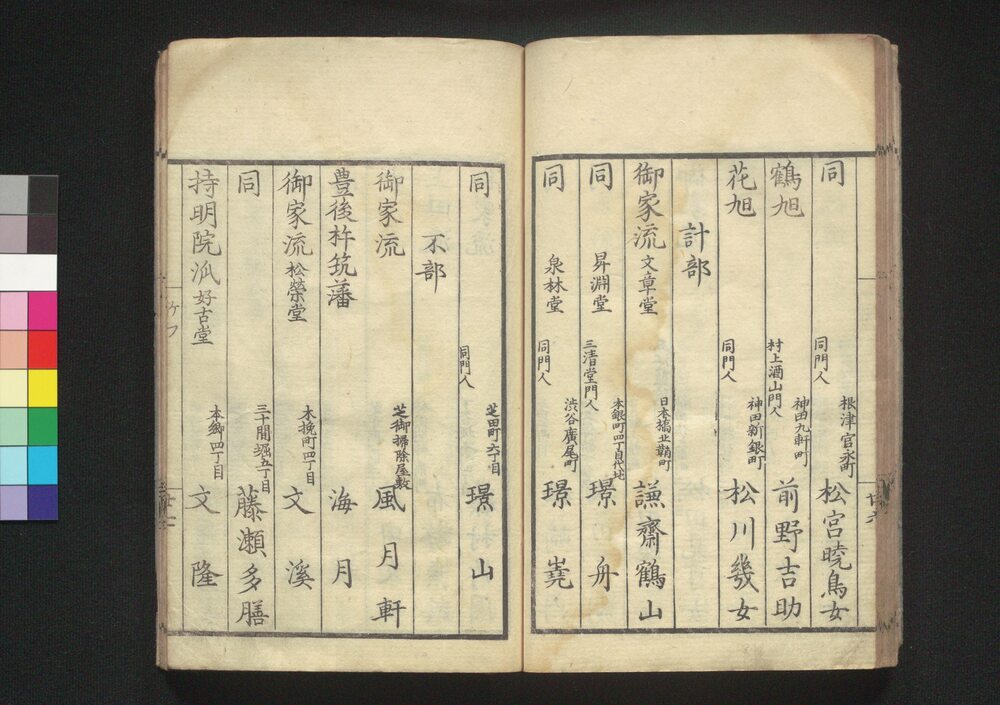 同 同門人 根津宮永町 松宮暁鳥女
鶴旭 村上酒山門人 神田九軒町 前野吉助
花旭 同門人 神田新銀町 松川幾女
計部
御家流 文章堂 日本橋北鞘町 謙齋鶴山
同 昇淵堂 三清堂門人 本銀町四丁目代地 璟舟
同 泉林堂 同門人 渋谷廣尾町 璟嶤
同 同門人 芝田町六丁目 璟山
不部
御家流 芝御掃除屋敷 風月軒
豊後杵筑藩 海月
御家流 松榮堂 木挽町四丁目 文溪
同 三十間堀五丁目 藤瀬多膳
持明院流 好古堂 本郷四丁目 文隆
ケフ